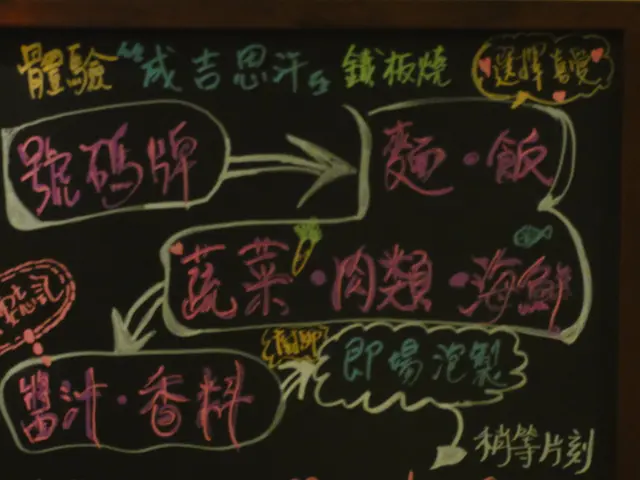 體驗"成吉思汗"鐵板燒
選擇喜愛
號碼牌
麵·飯
蔬菜·肉類·海鮮
醬汁·香料
即場泡製
稍等片刻